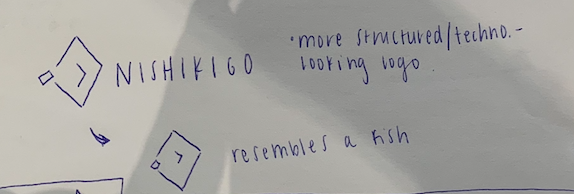 NISHIKIGO
•more structured/techno.-
looking logo.
resembles a fish